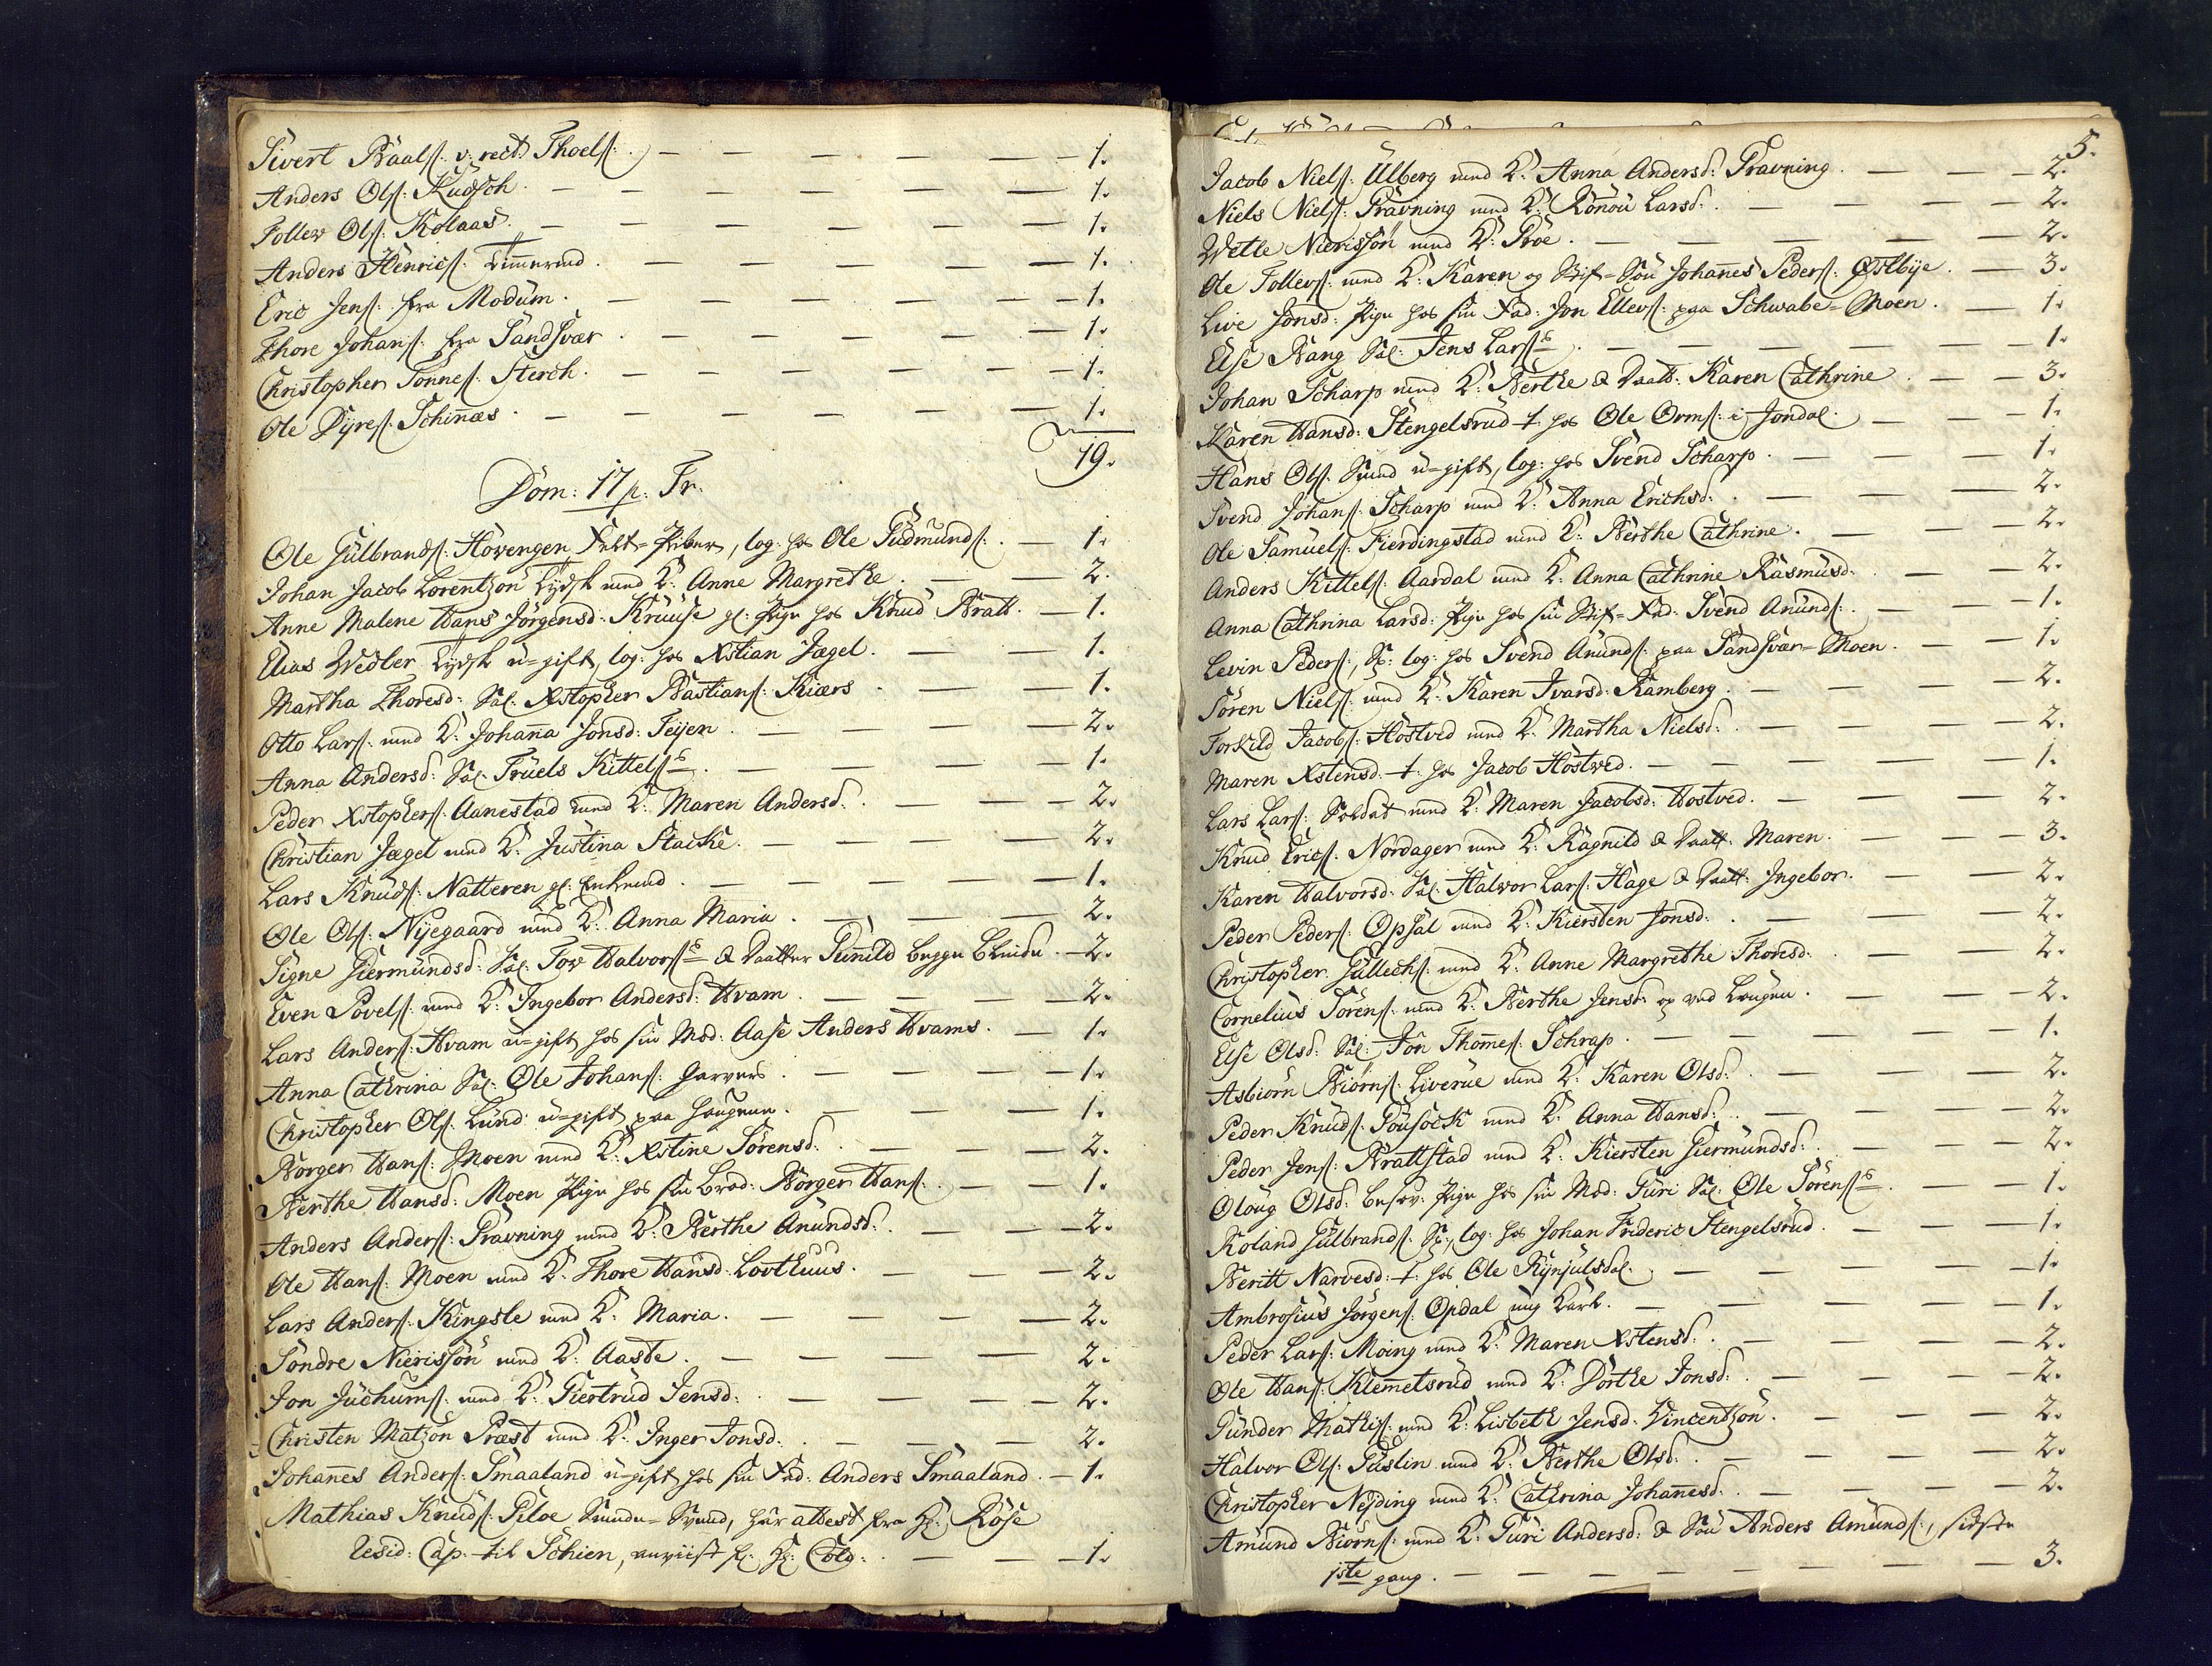 Sivert Baals: v: rect: Thoels: — 1.
Anders Ols: Kudsch. — 1.
Tollev Ols: Kolaas. — 1.
Anders Henrics: Timmermd. — 1.
Eric Jens: fra Modum. — 1.
Thore Johans: fra Sandsvær. — 1.
Christopher Tønnes: Sterch. — 1.
Ole Dyres: Schinæs. — 1.
19.
Dom: 17 p: Tr.
Ole Gulbrands: Hovengen Felt-Piber, log: hos Ole Gudmunds: — 1.
Johan Jacob Lorentzøn Tydsk med K: Anne Margrethe. — 2.
Anne Malene Hans Jørgensd: Kruuse gl: Pige hos Knud Bratt. — 1.
Elias Wedler Tydsk u-gift, log: hos Xstian Jægel. — 1.
Martha Thoresd: Sal: Xstopher Bastians: Kiærs. — 1.
Otto Lars: med K: Johanna Jonsd: Teijen. — 2.
Anna Andersd: Sal: Truels Kittels: — 1.
Peder Xstophers: Aanestad med K: Maren Andersd: — 2.
Christian Jægel med K: Justina Stacke. — 2.
Lars Knuds: Natteren gl: Enkemd. — 1.
Ole Ols: Nyegaard med K: Anna Maria. — 2.
Signe Giermundsd: Sal: Tov Halvors: & Daatter Gunild begge blinde. — 2.
Even Povels: med K: Ingebor Andersd: Hvam. — 2.
Lars Anders: Hvam u-gift hos sin Mod: Aase Anders Hvams. — 1.
Anna Cathrina Sal: Ole Johans: Garvers. — 1.
Christopher Ols: Lund u-gift paa Haugene. — 1.
Borger Hans: Moen med K: Xstine Sørensd: — 2.
Berthe Hansd: Moen Pige hos sin Brod: Borger Hans: — 1.
Anders Anders: Gravning med K: Berthe Anundsd: — 2.
Ole Hans: Moen med K: Thore Hansd: Lovthuus. — 2.
Lars Anders: Kingsle med K: Maria. — 2.
Søndre Nierissøn med K: Aaste. — 2.
Jon Juchums: med K: Giertrud Jensd: — 2.
Christen Matzøn Præst med K: Inger Jonsd: — 2.
Johannes Anders: Smaaland u-gift hos sin Fad: Anders Smaaland. — 1.
Mathias Knuds: Giloe Smede-Svend, har attest fra Hr: Røse
Resid: Cap: til Schien, anviist fr: Hr: Cold: — 1.
5.
Jacob Niels: Ulberg med K: Anna Andersd: Gravning. — 2.
Niels Niels: Gravning med K: Rønou Larsd: — 2.
Wetle Nierissøn med K: Groe. — 2.
Ole Tollevs: med K: Karen og Stif-Søn Johannes Peders: Østbye. — 3.
Live Jonsd: Pige hos sin Fad: Jon Ellevs: paa Schwabe-Moen. — 1.
Else Bang Sal: Jens Lars: — 1.
Johan Scharp med K: Berthe & Daatt: Karen Cathrine. — 3.
Karen Hansd: Stengelsrud t: hos Ole Orms: i Jondal. — 1.
Hans Ols: Smed u-gift, log: hos Svend Scharp. — 1.
Svend Johans: Scharp med K: Anna Erichsd: — 2.
Ole Samuels: Fierdingstad med K: Berthe Cathrine. — 2.
Anders Kittels: Aardal med K: Anna Cathrine Rasmusd: — 2.
Anna Cathrina Larsd: Pige hos sin Stif-Fad: Svend Anunds: — 1.
Levin Peders:, log: hos Svend Anunds: paa Sandsvær-Moen. — 1.
Søren Niels: med K: Karen Ivarsd: Ramberg. — 2.
Torkild Jacobs: Hostved med K: Martha Nielsd: — 2.
Maren Xstensd: t: hos Jacob Hostved. — 1.
Lars Lars: Soldat med K: Maren Jacobsd: Hostved. — 2.
Knud Erics: Nordager med K: Ragnild & Daatt: Maren. — 3.
Karen Halvorsd: Sal: Halvor Lars: Hage & Daatt: Ingebor. — 2.
Peder Peders: Opsal med K: Kiersten Jonsd: — 2.
Christopher Gullechs: med K: Anne Margrethe Thorsd: — 2.
Cornelius Sørens: med K: Berthe Jensd: op ved Laugen. — 2.
Else Olsd: Sal: Jon Thomes: Schrap. — 1.
Asbiørn Biørns: Liverue med K: Karen Olsd: — 2.
Peder Knuds: Gousock med K: Anna Hansd: — 2.
Peder Jens: Brattstad med K: Kiersten Giermundsd: — 2.
Oloug Olsd: besov: Pige hos sin Mod: Guri Sal: Ole Sørens: — 1.
Roland Gulbrands:, log: hos Johan Frideric Stengelsrud. — 1.
Beritt Narvesd: t: hos Ole Rynjulsdal. — 1.
Ambrosius Jørgens: Opdal ung Karl. — 1.
Peder Lars: Moing med K: Maren Xstensd: — 2.
Ole Hans: Klemetsrud med K: Dorthe Jonsd: — 2.
Gunder Mathis: med K: Lisbeth Jensd: Vincentzøn. — 2.
Halvor Ols: Guslin med K: Berthe Olsd: — 2.
Christopher Neyding med K: Cathrina Johannesd: — 2.
Amund Biørns: med K: Guri Andersd: & Søn Anders Amunds:, sidste
1ste gang. — 3.